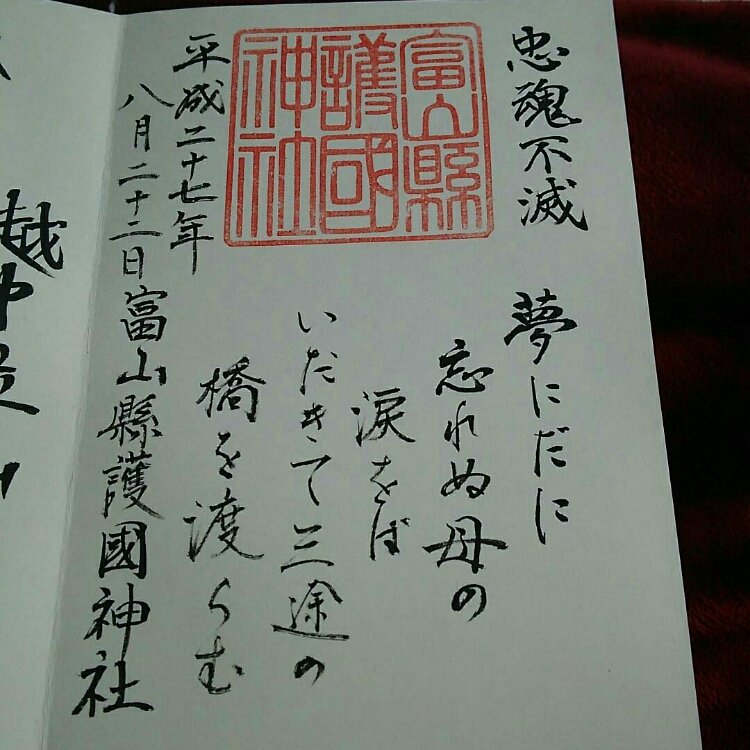 忠魂不滅
夢にだに
忘れぬ母の
涙をば
いだきて三途の
橋を渡らむ
富山縣
護國
神社
平成二十七年
八月二十二日富山縣護國神社
越中